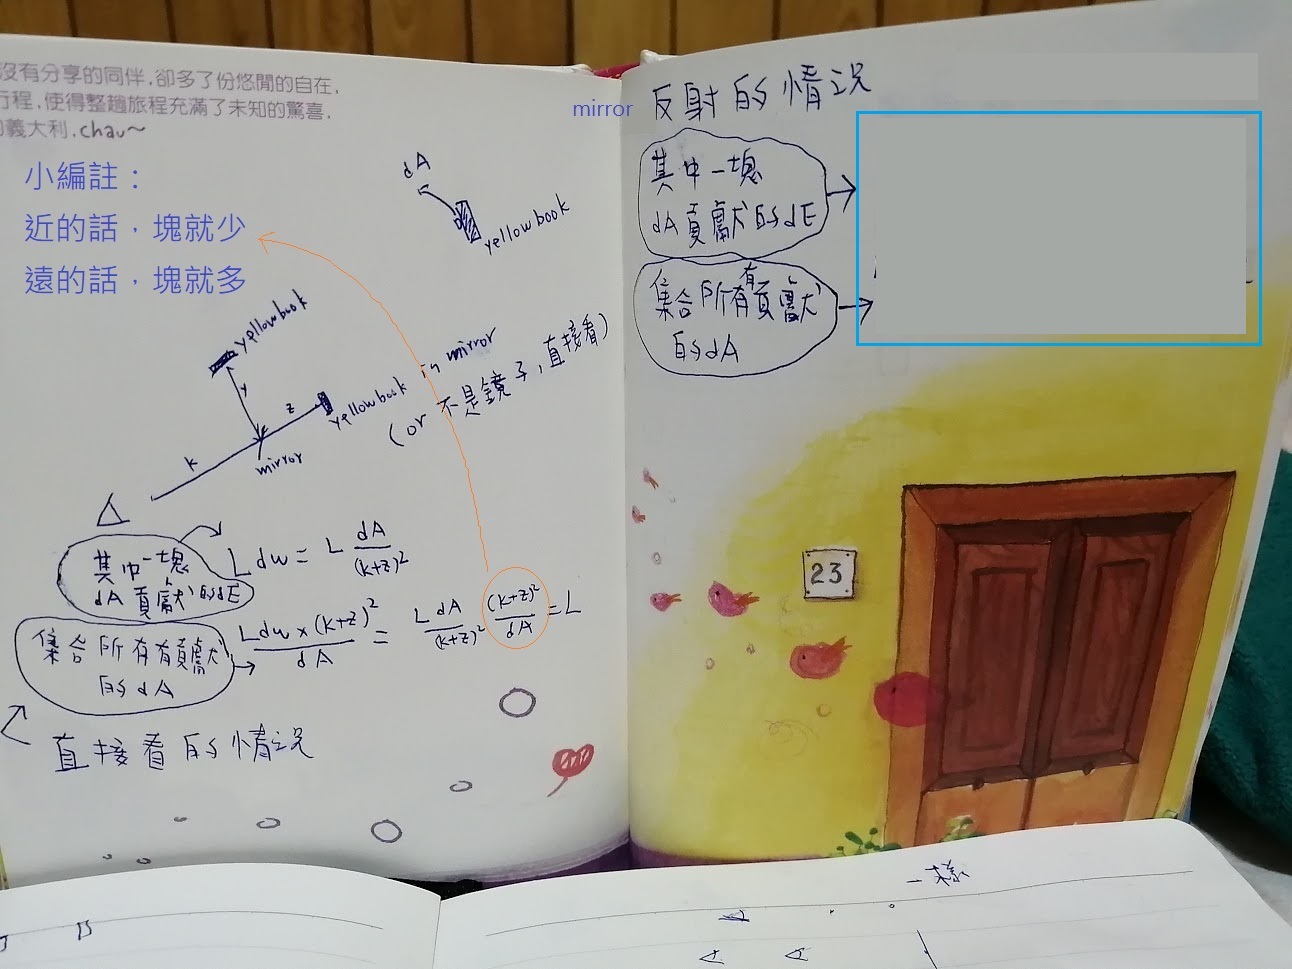 沒有分享的同伴,卻多了份悠閒的自在,
行程,使得整趟旅程充滿了未知的驚喜,
義大利,chau~
小編註：
近的話，塊就少
遠的話，塊就多
dA
yellow book
yellow book
y
z
yellow book in mirror
(or 不是鏡子,直接看)
k
mirror
其中一塊
dA貢獻的dE
L dw = L dA/(k+z)²
集合所有有貢獻
的dA
L dw × (k+z)²/dA = L dA/(k+z)² (k+z)²/dA = L
直接看的情況
mirror 反射的情況
其中一塊
dA貢獻的dE
集合所有有貢獻
的dA
23
一樣